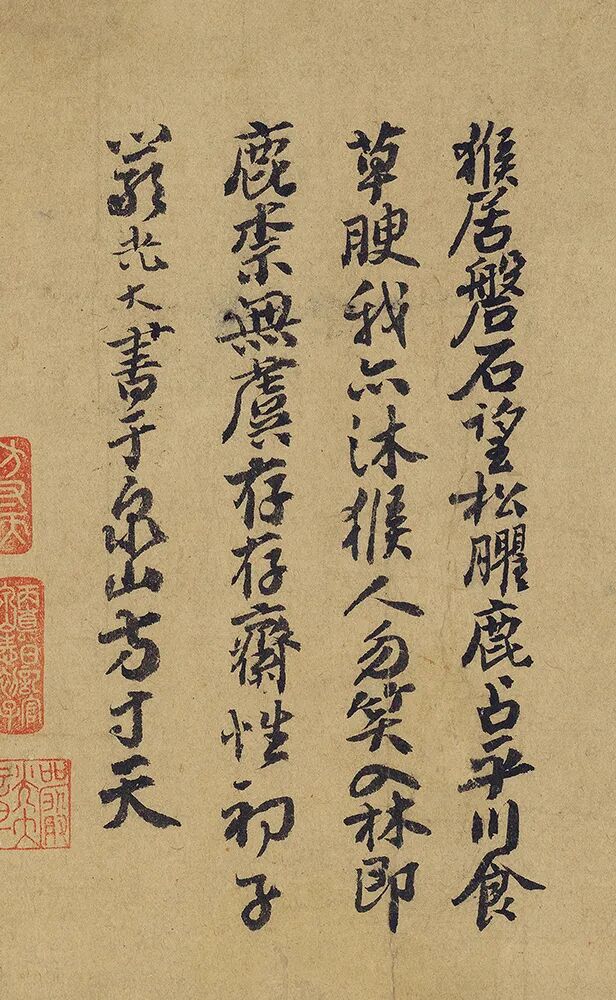 猴居磐石望松臞鹿占平川食
草腴我亦沐猴人勿笑入林即
鹿柰無虞存存齋性初子
嚴光大書于泉山方寸天